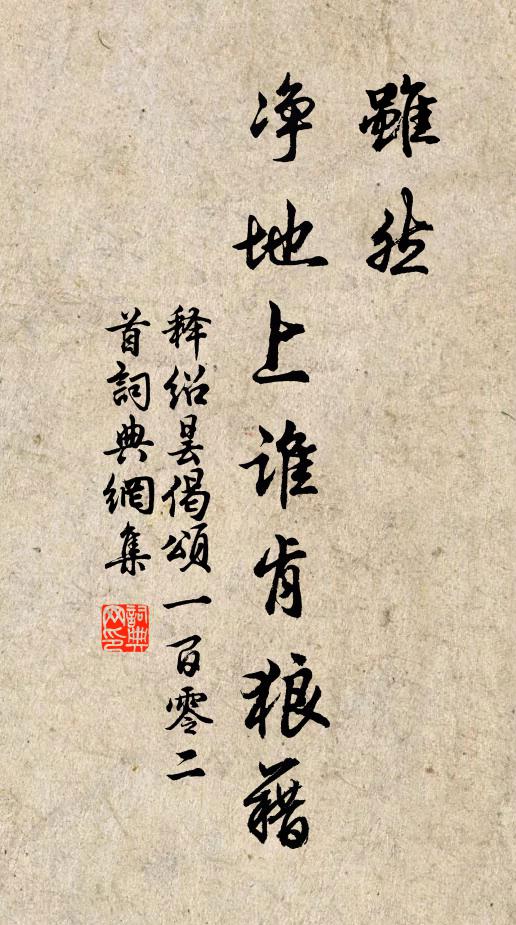 雖然
净地上誰肯狼藉
释绍曇偈頌一百零二
首詞典網集
詞典
网印